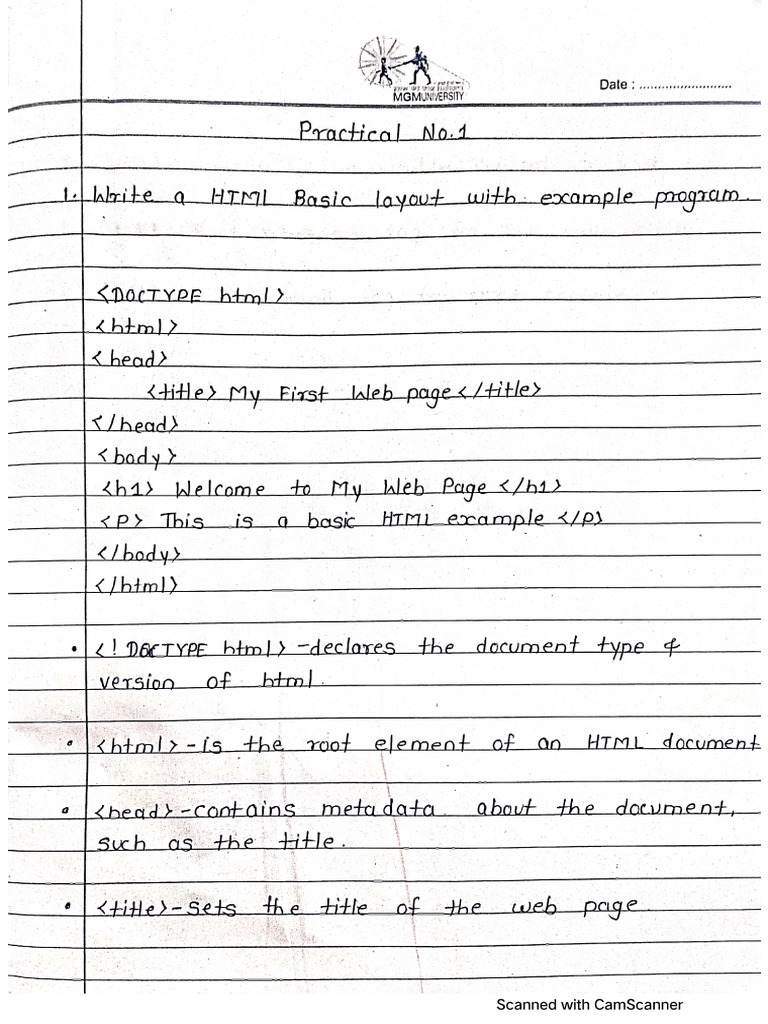 MGM UNIVERSITY
Date : ..........................
Practical No.1
1. Write a HTML Basic layout with example program.
<DOCTYPE html>
<html>
<head>
<title> My First Web page </title>
</head>
<body>
<h1> Welcome to My Web Page </h1>
<P> This is a basic HTML example </P>
</body>
</html>
• <! DOCTYPE html> -declares the document type &
version of html.
• <html> - is the root element of an HTML document
• <head> -contains metadata about the document,
such as the title.
• <title> -sets the title of the web page.
Scanned with CamScanner